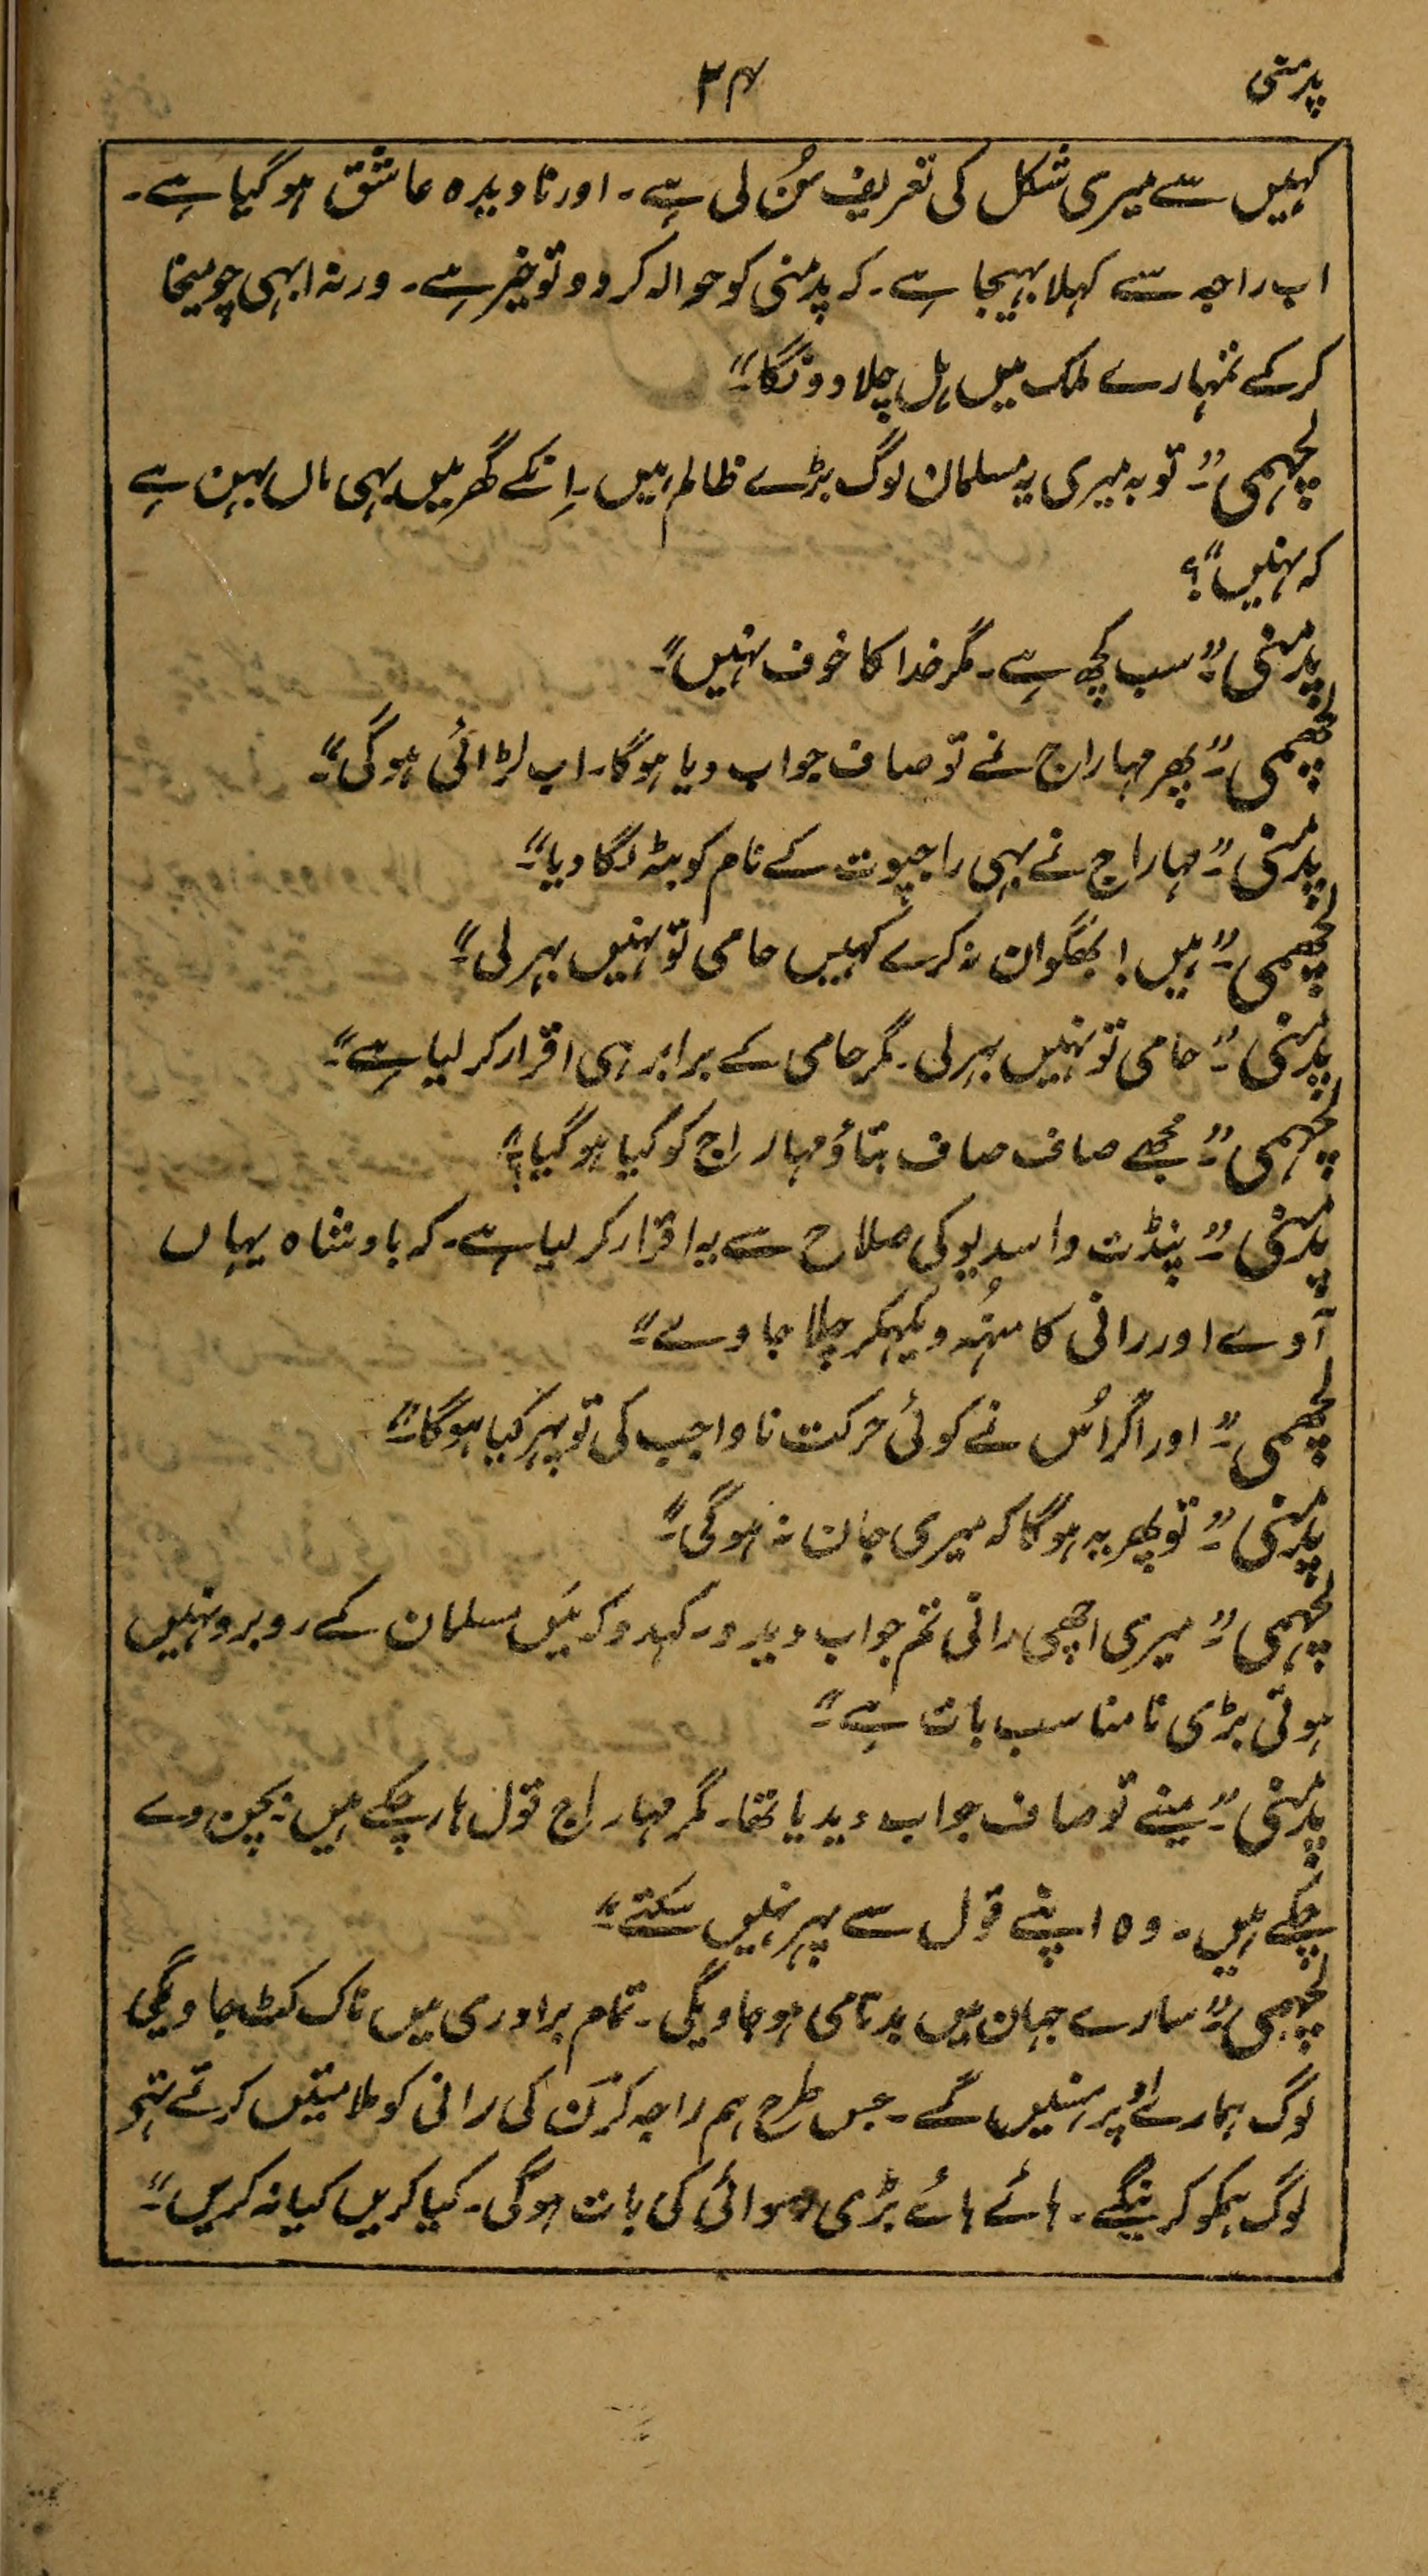 پدمنی
۲۴
کہیں سے میری شکل کی تعریف سُن لی ہے۔ اور نادیدہ عاشق ہو گیا ہے۔
اب راجہ سے کہلا بہیجا ہے۔ کہ پدمنی کو حوالہ کر دو تو خیر ہے۔ ورنہ ابہی چومیخا
کر کے تمہارے ملک میں ہل چلا دونگا“۔
لچہمی۔ ”توبہ میری یہ مسلمان لوگ بڑے ظالم ہیں۔ اِنکے گھر میں بہی ماں بہن ہے
کہ نہیں“؟
پدمنی۔ ”سب کچھ ہے۔ مگر خدا کا خوف نہیں“۔
لچھمی۔ ”پھر مہاراج نے تو صاف جواب دیا ہوگا۔ اب لڑائی ہوگی“۔
پدمنی۔ ”مہاراج نے بہی راجپوت کے نام کو بٹہ لگا دیا“۔
لچھمی۔ ”ہیں! بھگوان نہ کرے کہیں حامی تو نہیں بہر لی“۔
پدمنی۔ ”حامی تو نہیں بہر لی۔ مگر حامی کے برابر ہی اقرار کر لیا ہے“۔
لچہمی۔ ”مجھے صاف صاف بتاؤ مہاراج کو کیا ہو گیا“؟
پدمنی۔ ”پنڈت واسدیو کی صلاح سے یہ اقرار کر لیا ہے۔ کہ بادشاہ یہاں
آوے اور رانی کا مُنہہ دیکہکر چلا جاوے“۔
لچھمی۔ ”اور اگر اُس نے کوئی حرکت ناواجب کی تو پہر کیا ہوگا“۔
پدمنی۔ ”تو پھر یہ ہوگا کہ میری جان نہ ہوگی“۔
لچہمی۔ ”میری اچھی رانی تم جواب دیدو۔ کہدو کہ مَیں مسلمان کے روبرو نہیں
ہوتی بڑی نامناسب بات ہے“۔
پدمنی۔ ”مینے تو صاف جواب دیدیا تھا۔ مگر مہاراج قول ہار چکے ہیں۔ بچن دے
چکے ہیں۔ وہ اپنے قول سے پہر نہیں سکتے“۔
لچہمی۔ ”سارے جہان میں بدنامی ہو جاویگی۔ تمام برادری میں ناک کٹ جاویگی
لوگ ہمارے اُوپر ہنسیں گے۔ جس طرح ہم راجہ کرَن کی رانی کو ملامتیں کرتے تہے
لوگ ہمکو کرینگے۔ ہائے ہائے بڑی رسوائی کی بات ہوگی۔ کیا کریں کیا نہ کریں“۔